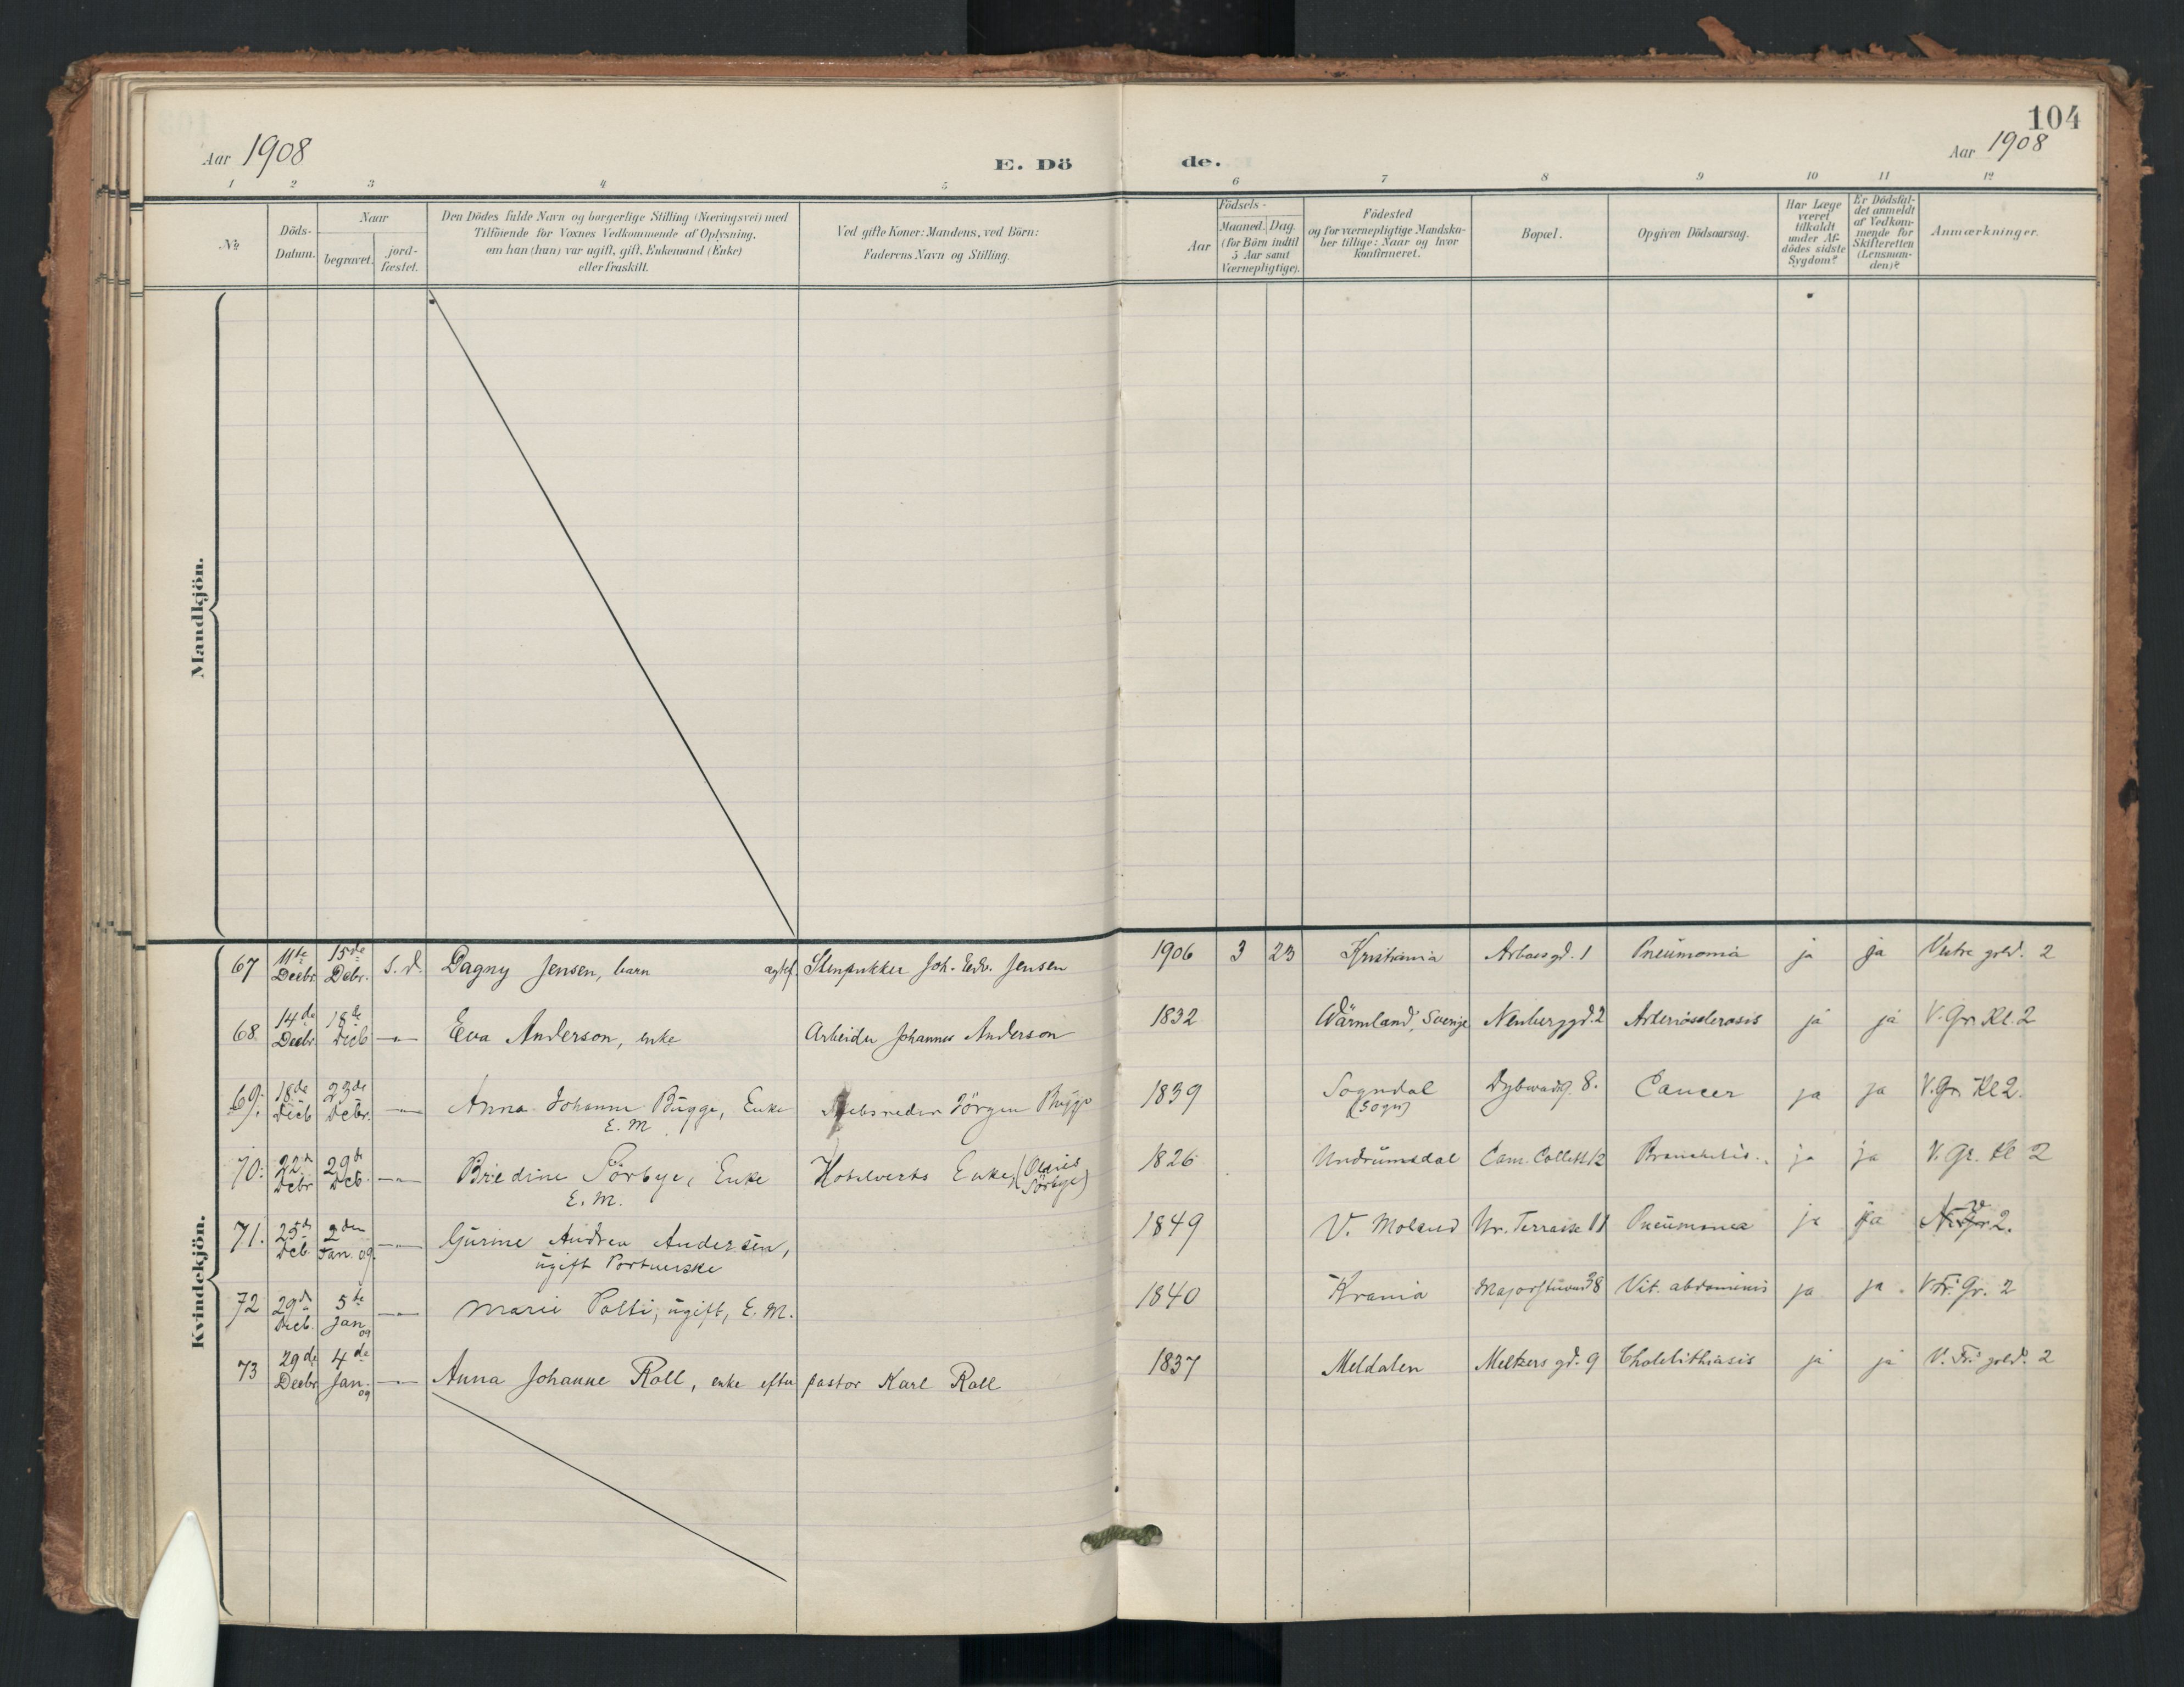 104
Aar 1908
E. Dö de.
Aar 1908
1 2 3 4 5 6 7 8 9 10 11 12
No
Döds-
Datum.
Naar
begravet.
jord-
fæstet.
Den Dödes fulde Navn og borgerlige Stilling (Næringsvei) med
Tilföiende for Voxnes Vedkommende af Oplysning,
om han (hun) var ugift, gift, Enkemand (Enke)
eller fraskilt.
Ved gifte Koner: Mandens, ved Börn:
Faderens Navn og Stilling.
Födsels-
Aar
Maaned. Dag.
(for Börn indtil
5 Aar samt
Værnepligtige).
Födested
og for værnepligtige Mandska-
ber tillige: Naar og hvor
konfirmeret.
Bopæl.
Opgiven Dödsaarsag.
Har Læge
været
tilkaldt
under Af-
dödes sidste
Sygdom?
Er Dödsfal-
det anmeldt
af Vedkom-
mende for
Skifteretten
(Lensman-
den)?
Anmærkninger.
Mandkjön.
Kvindekjön.
67 11te Decbr. 15de Debr. s. d. Dagny Jensen, barn Stenpukker Joh. Edv. Jensen 1906 3 23 Kristiania 1 Pneumonia ja ja Vestre grld. 2
68 14de Decbr 18de Decb —"— Eva Anderson, enke Arbeider Johannes Anderson 1832 Wärmland, Sverige Neubergd. 2 Arteriosclerosis ja ja V. Gr. Kl. 2
69. 18de Decb 23de Debr. —"— Anna Johanne Bugge, Enke Skibsreder Jörgen Bugge 1839 Sogndal Dybwadsg. 8. Cancer ja ja V. Gr. Kl 2.
E. M. (Sogn)
70. 22de Debr 29de Deb. —"— Bredine Sörbye, Enke Hotelverts Enke, Sörbye) 1826 Undrumsdal Cam. Colletts 12 ja ja V. Gr. Kl 2
E. M.
71. 25de Deb. 2den Jan. 09. —"— Gurine Andrea Andersen, 1849 V. Moland Ur. Terrasse 11 Pneumonia ja ja 2.
ugift Portnerske
72 29de Decb. 5te Jan 09 —"— Marie Polti, ugift, E. M. 1840 Krania Majorstuvei 38 Vit. abdominis ja ja. V. Fr. Gr. 2
73 29de Decbr 4de Jan. 09 —"— Anna Johanne Roll, enke efter pastor Karl Roll 1837 Meldalen Meltzers gd. 9 Cholelithiasis ja ja V. Frs grld. 2